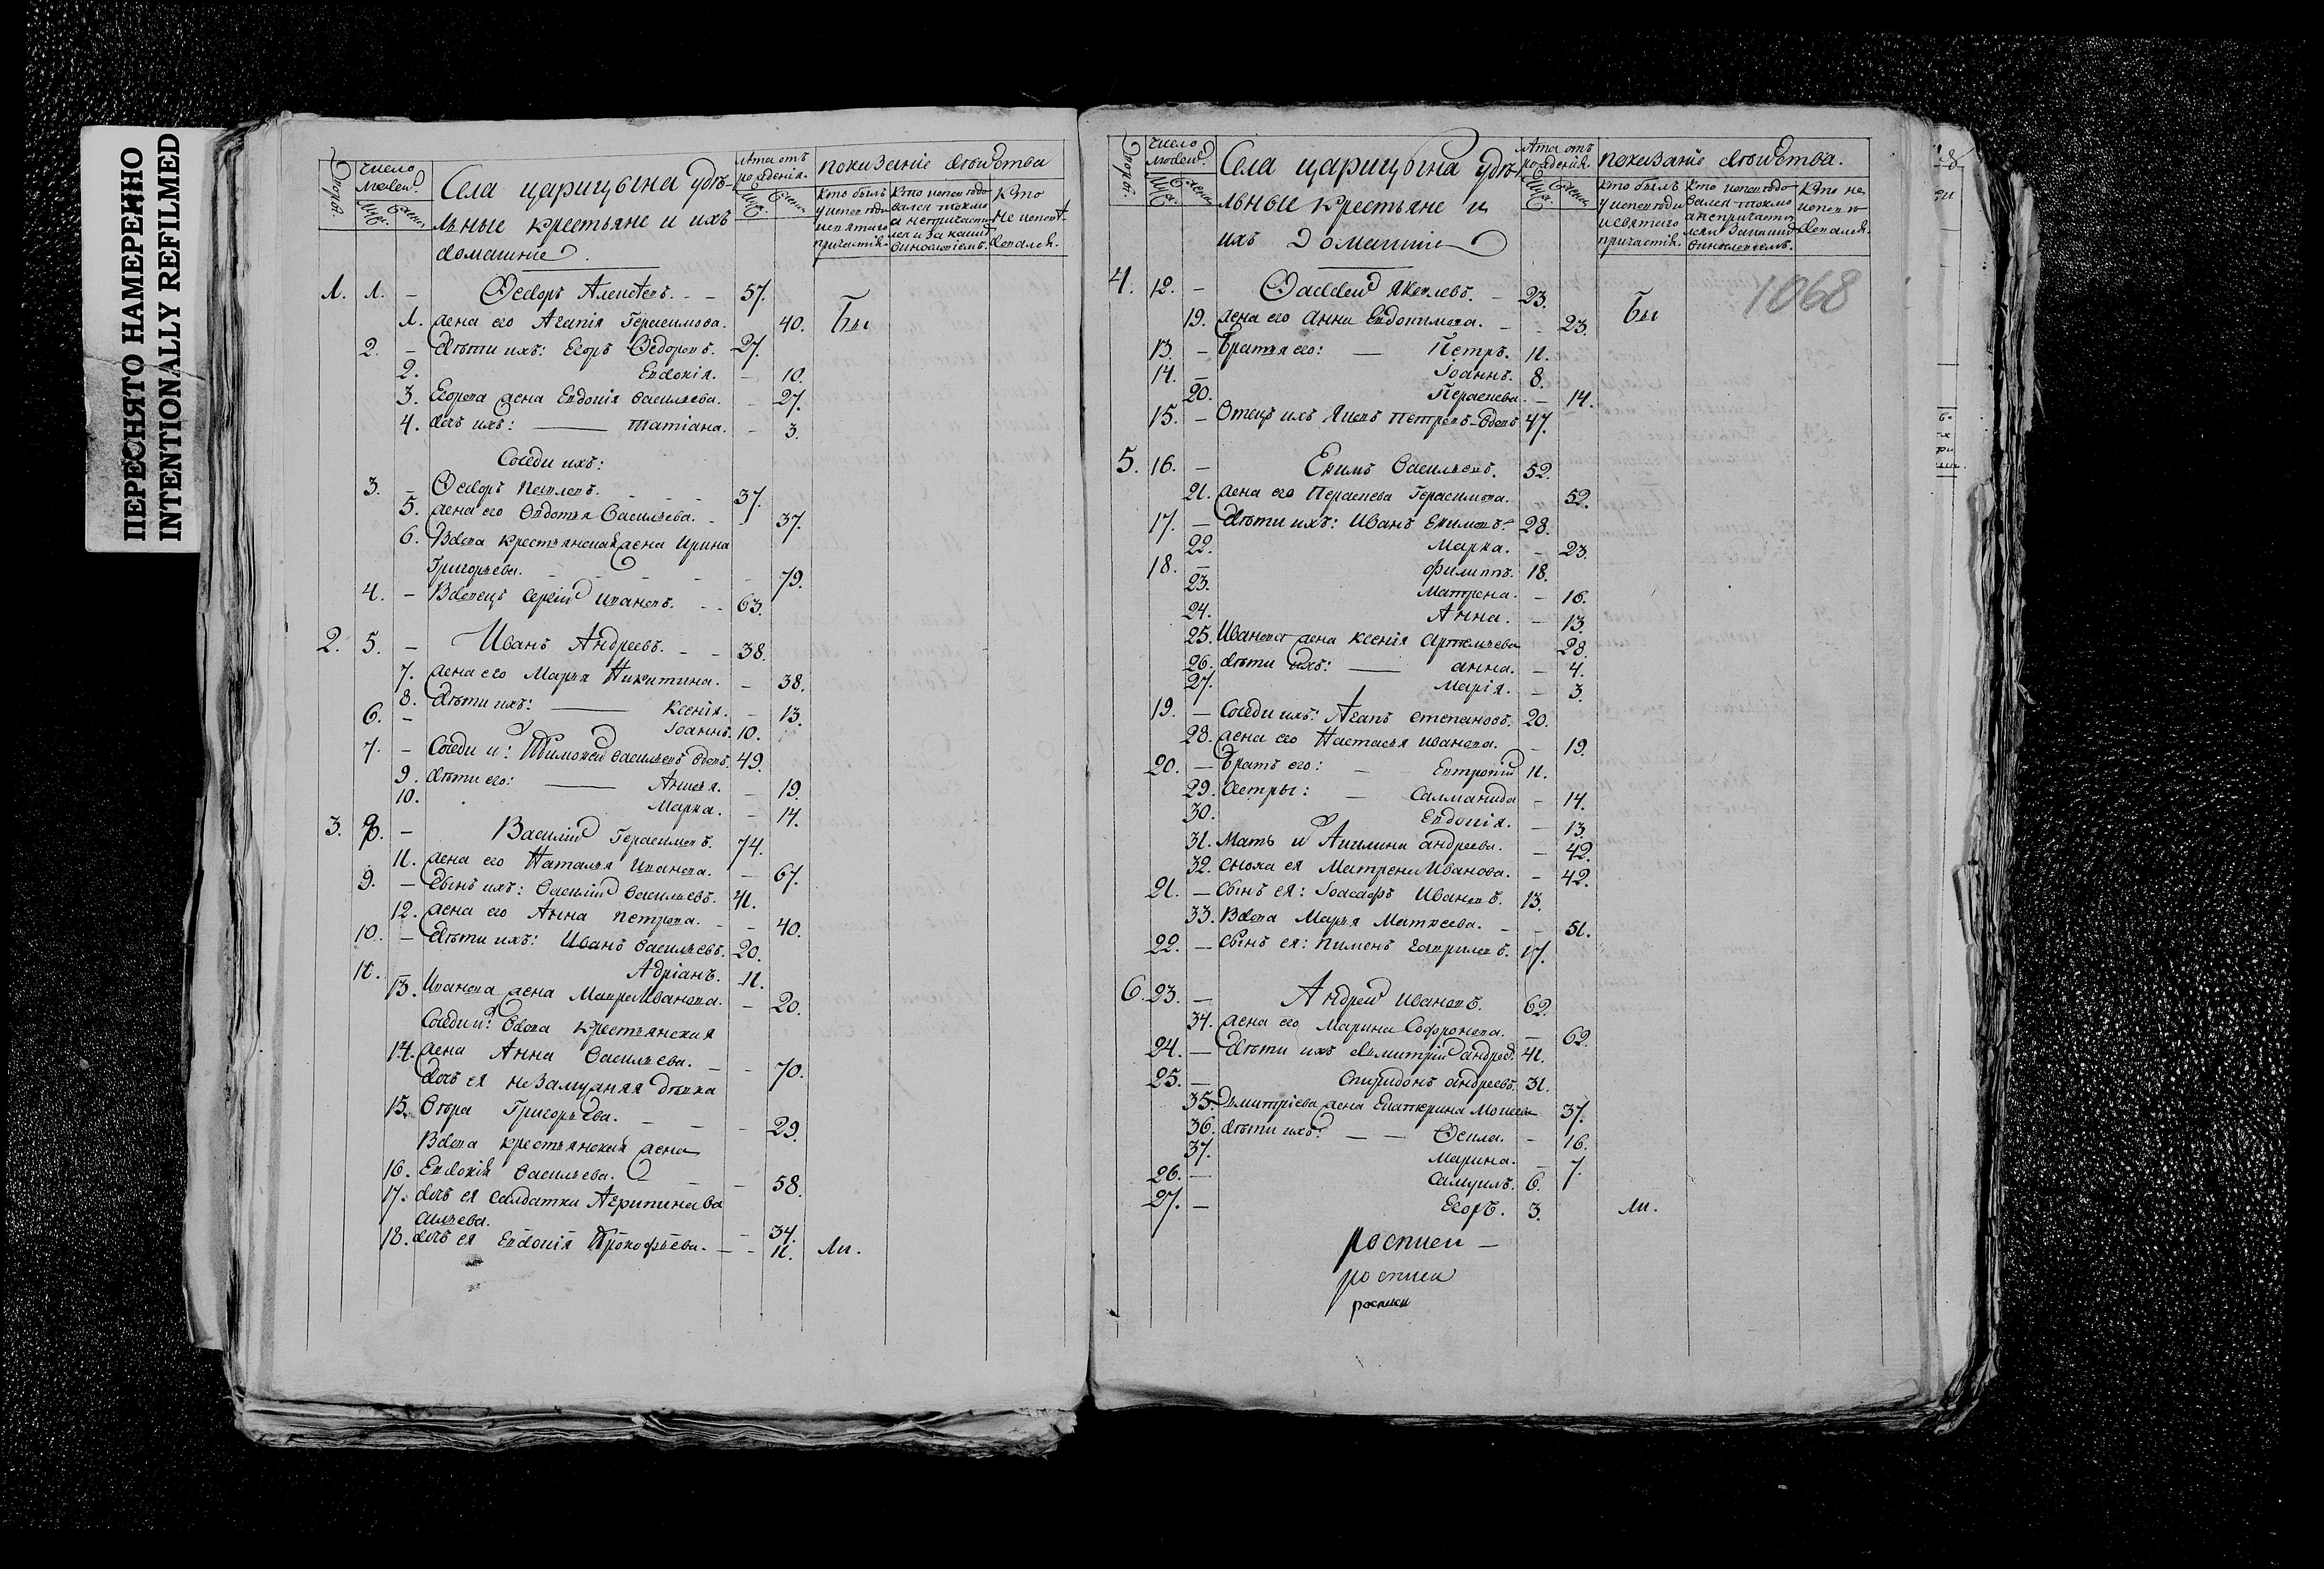 ПЕРЕСНЯТО НАМЕРЕННО
INTENTIONALLY REFILMED
число
людей.
Села царицына удѣ-
льные крестьяне и ихъ
домашніе.
лѣта отъ
рожденія.
показаніе дѣйства
Кто былъ
у исповѣди
и святаго
причастія.
Кто исповѣдо-
вался токмо
а не причасти-
лся и за какимъ
винословіемъ.
Кто
не исповѣ-
довался.
1. 1. – Ѳедоръ Алексѣевъ. – – 57.
1. жена его Агапія Герасимова. 40. Бы
2. – дѣти ихъ: Егоръ Ѳедоровъ. 27.
2. Евдокія. – 10.
3. Егорова жена Евдокія Васильева. – 27.
4. дочь ихъ: Татіана. – 3.
Соседи ихъ:
3. – Ѳедоръ 37.
5. жена его Евдотья Васильева. – 37.
6. Вдова крестьянская жена Ирина
Григорьева. 79.
4. – Вдовецъ Сергій Ивановъ. – – 63.
2. 5. – Иванъ Андреевъ. – – 38.
7. жена его Марья Никитина. – 38.
8. дѣти ихъ: Ксенія. – 13.
6. – Іоаннъ. 10.
7. – Соседи и: Тимофей Васильевъ вдовъ. 49.
9. дѣти его: Анисья. – 19.
10. Марѳа. – 14.
3. 8. – Василій Герасимовъ. 74.
11. жена его Наталья Иванова. – 67.
9. – Сынъ ихъ: Василій Васильевъ. 41.
12. жена его Анна Петрова. – – 40.
10. – дѣти ихъ: Иванъ Васильевъ. 20.
11. – Адріанъ. 11.
13. Иванова жена Мавра Иванова. – 20.
Соседи и: Вдова крестьянская
14. жена Анна Васильева. – – 70.
дочь ея незамужняя дѣвка
15. Григорьева. – – – 29.
Вдова крестьянская жена
16. Евдокія Васильева. – – – 58.
17. дочь ея салдатка Агрипина Ва
сильева. – 34.
18. дочь ея Евдокія Прокофьева. – – 11. ли.
число
людей.
Села царицына удѣ
льные крестьяне и
ихъ домашніе
лѣта отъ
рожденія.
показаніе дѣйства.
Кто былъ
у исповѣди
и святаго
причастія.
Кто исповѣдо
вался токмо
а не причасти
лся и за какимъ
винословіемъ.
Кто не
исповѣ
довался.
1068
4. 12. – Ѳаддей Яковлевъ. – 23.
19. жена его Анна Евдокимова. – – 23. Бы
13. – Братья его: Петръ. 11.
14. – Іоаннъ. 8.
20. Параскева. – 14.
15. – Отецъ ихъ Яковъ Петровъ вдовъ 47.
5. 16. – Ефимъ Васильевъ. 52.
21. жена его Параскева Герасимова. – 52.
17. – дѣти ихъ: Иванъ Ефимовъ. 28.
22. Марѳа. – 23.
18. – Филиппъ. 18.
23. Матрена. – 16.
24. Анна. – 13.
25. Иванова жена Ксенія Артемьева 28.
26. дѣти ихъ: анна. – 4.
27. Марія. – 3.
19. – Соседи ихъ: Агапъ Степановъ. 20.
28. жена его Настасья Иванова. – 19.
20. – Братъ его: – – Евтропій 11.
29. Сестры: – Саламанида – 14.
30. Евдокія. – 13.
31. Мать и Акилина андреева. – 42.
32. сноха ея Матрена Иванова. – 42.
21. – Сынъ ея: Іоасафъ Ивановъ. 13.
33. Вдова Марья Матвеева. – – 51.
22. – Сынъ ея: Пименъ гавриловъ. 17.
6. 23. – Андрей Ивановъ. 62.
34. жена его Марина Софронова. – 62.
24. – дѣти ихъ Димитрій андрее. 41.
25. – Спиридонъ андреевъ. 31.
35. Димитріева жена Екатерина Моисеева 37.
36. дѣти ихъ: – – Ѳекла. – 16.
37. Марина. – 7.
26. – Самуилъ. 6.
27. – Егоръ. 3. ли.
росписи –
росписи
росписи